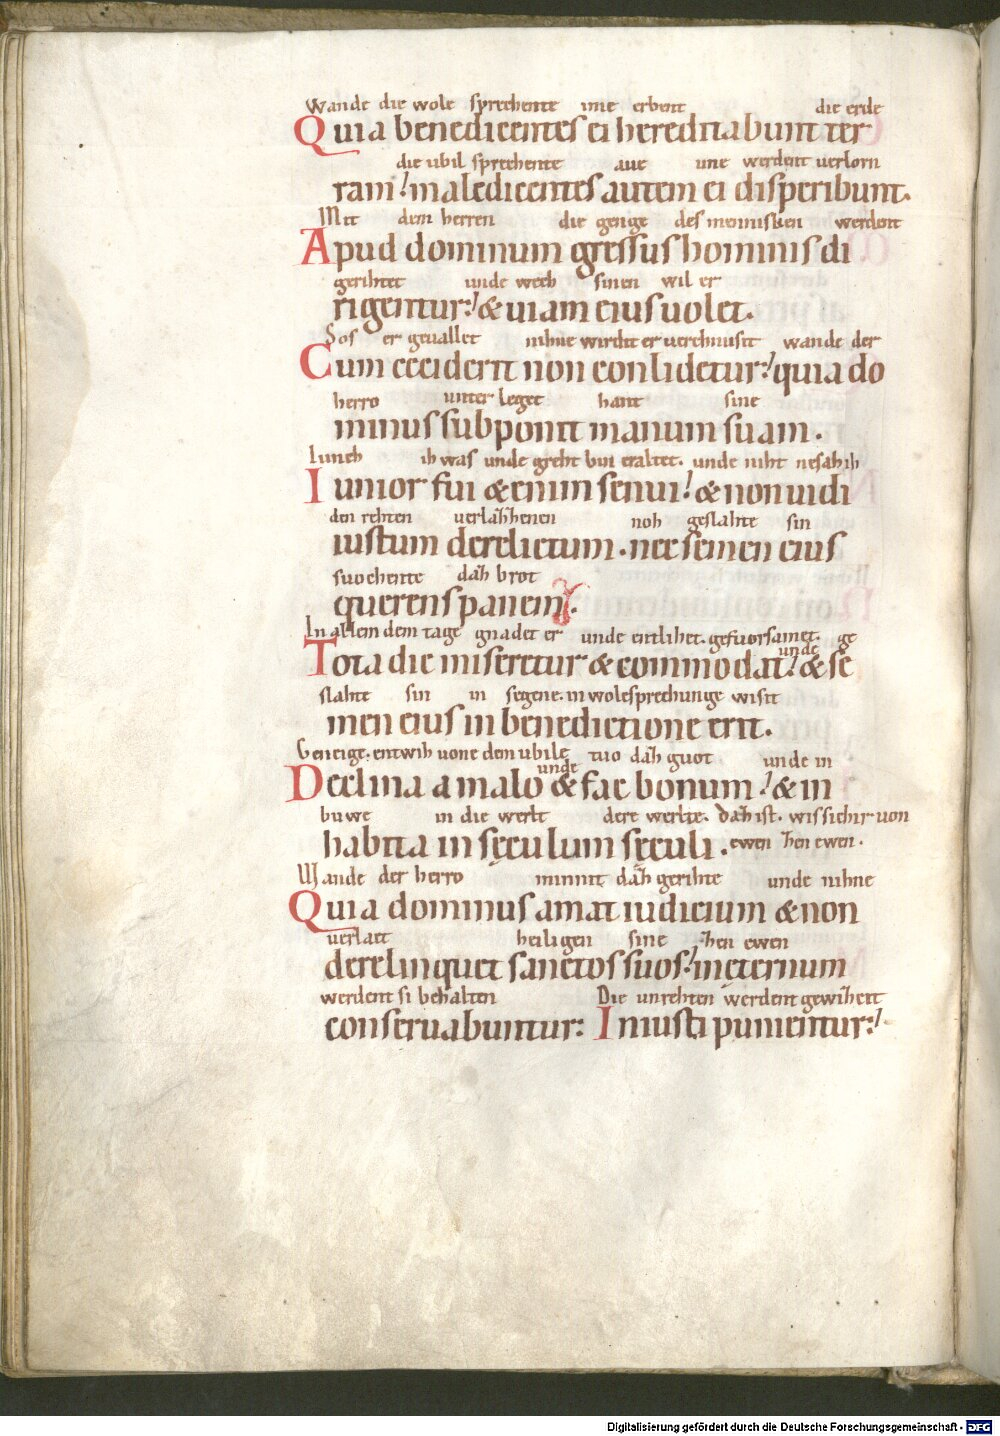 Wande die wole sprechente ime erbent die erde
Quia benedicentes ei hereditabunt ter
die ubil sprechente aue ime werdent uerlorn
ram! maledicentes autem ei disperibunt.
Mit dem herren die genge des mennisken werdent
Apud dominum gressus hominis di
gerihtet unde wech sinen wil er
rigentur! & uiam eius uolet.
Sos er geuallet nihne wirdit er uerchnusit wande der
Cum ceciderit non conlidetur! quia do
herro unter leget hant sine
minus subponit manum suam.
Iunch ih was unde greht bin eraltet. unde niht nesah ih
Iunior fui & enim senui! & non uidi
den rehten uerlahhenen noh geslahte sin
iustum derelictum. nec semen eius
suochente dah brot
querens panem.
In allem dem tage gnadet er unde entlihet. gefuorsamet. unde ge
Tota die miseretur & commodat! & se
slaht sin in segene. in wolesprechunge wisit
men eius in benedictione erit.
Geneige. entwih uone dem ubile unde tuo dah guot unde in
Declina a malo & fac bonum! & in
buwe in die werlt dere werlte. dah ist. wis sichir uon
habita in sęculum sęculi. ewen hen ewen.
Wande der herro minnit dah gerihte unde nihne
Quia dominus amat iudicium & non
uerlatt heiligen sine hen ewen
derelinquet sanctos suos! in ęternum
werdent si behalten Die unrehten werdent gewihent
conseruabuntur: Iniusti punientur!
Digitalisierung gefördert durch die Deutsche Forschungsgemeinschaft - DFG